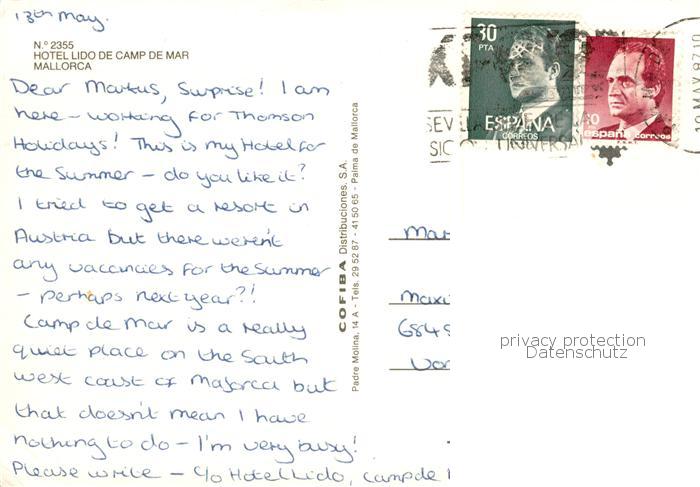 13th May.
N.º 2355
HOTEL LIDO DE CAMP DE MAR
MALLORCA
Dear Markus, Surprise! I am
here - working for Thomson
Holidays! This is my Hotel for
the Summer - do you like it?
I tried to get a resort in
Austria but there weren't
any vacancies for the Summer
- perhaps next year?!
Camp de Mar is a really
quiet place on the South
west coast of Majorca but
that doesn't mean I have
nothing to do - I'm very busy!
Please write - c/o Hotel Lido, Camp de
COFIBA Distribuciones, S.A.
Padre Molina, 14 A - Tels. 29 52 87 - 41 50 65 - Palma de Mallorca
30
PTA
ESPAÑA
CORREOS
españa correos
SEV
UNIVERSA
MAY 87
Mar
Maxi
6845
privacy protection
Datenschutz